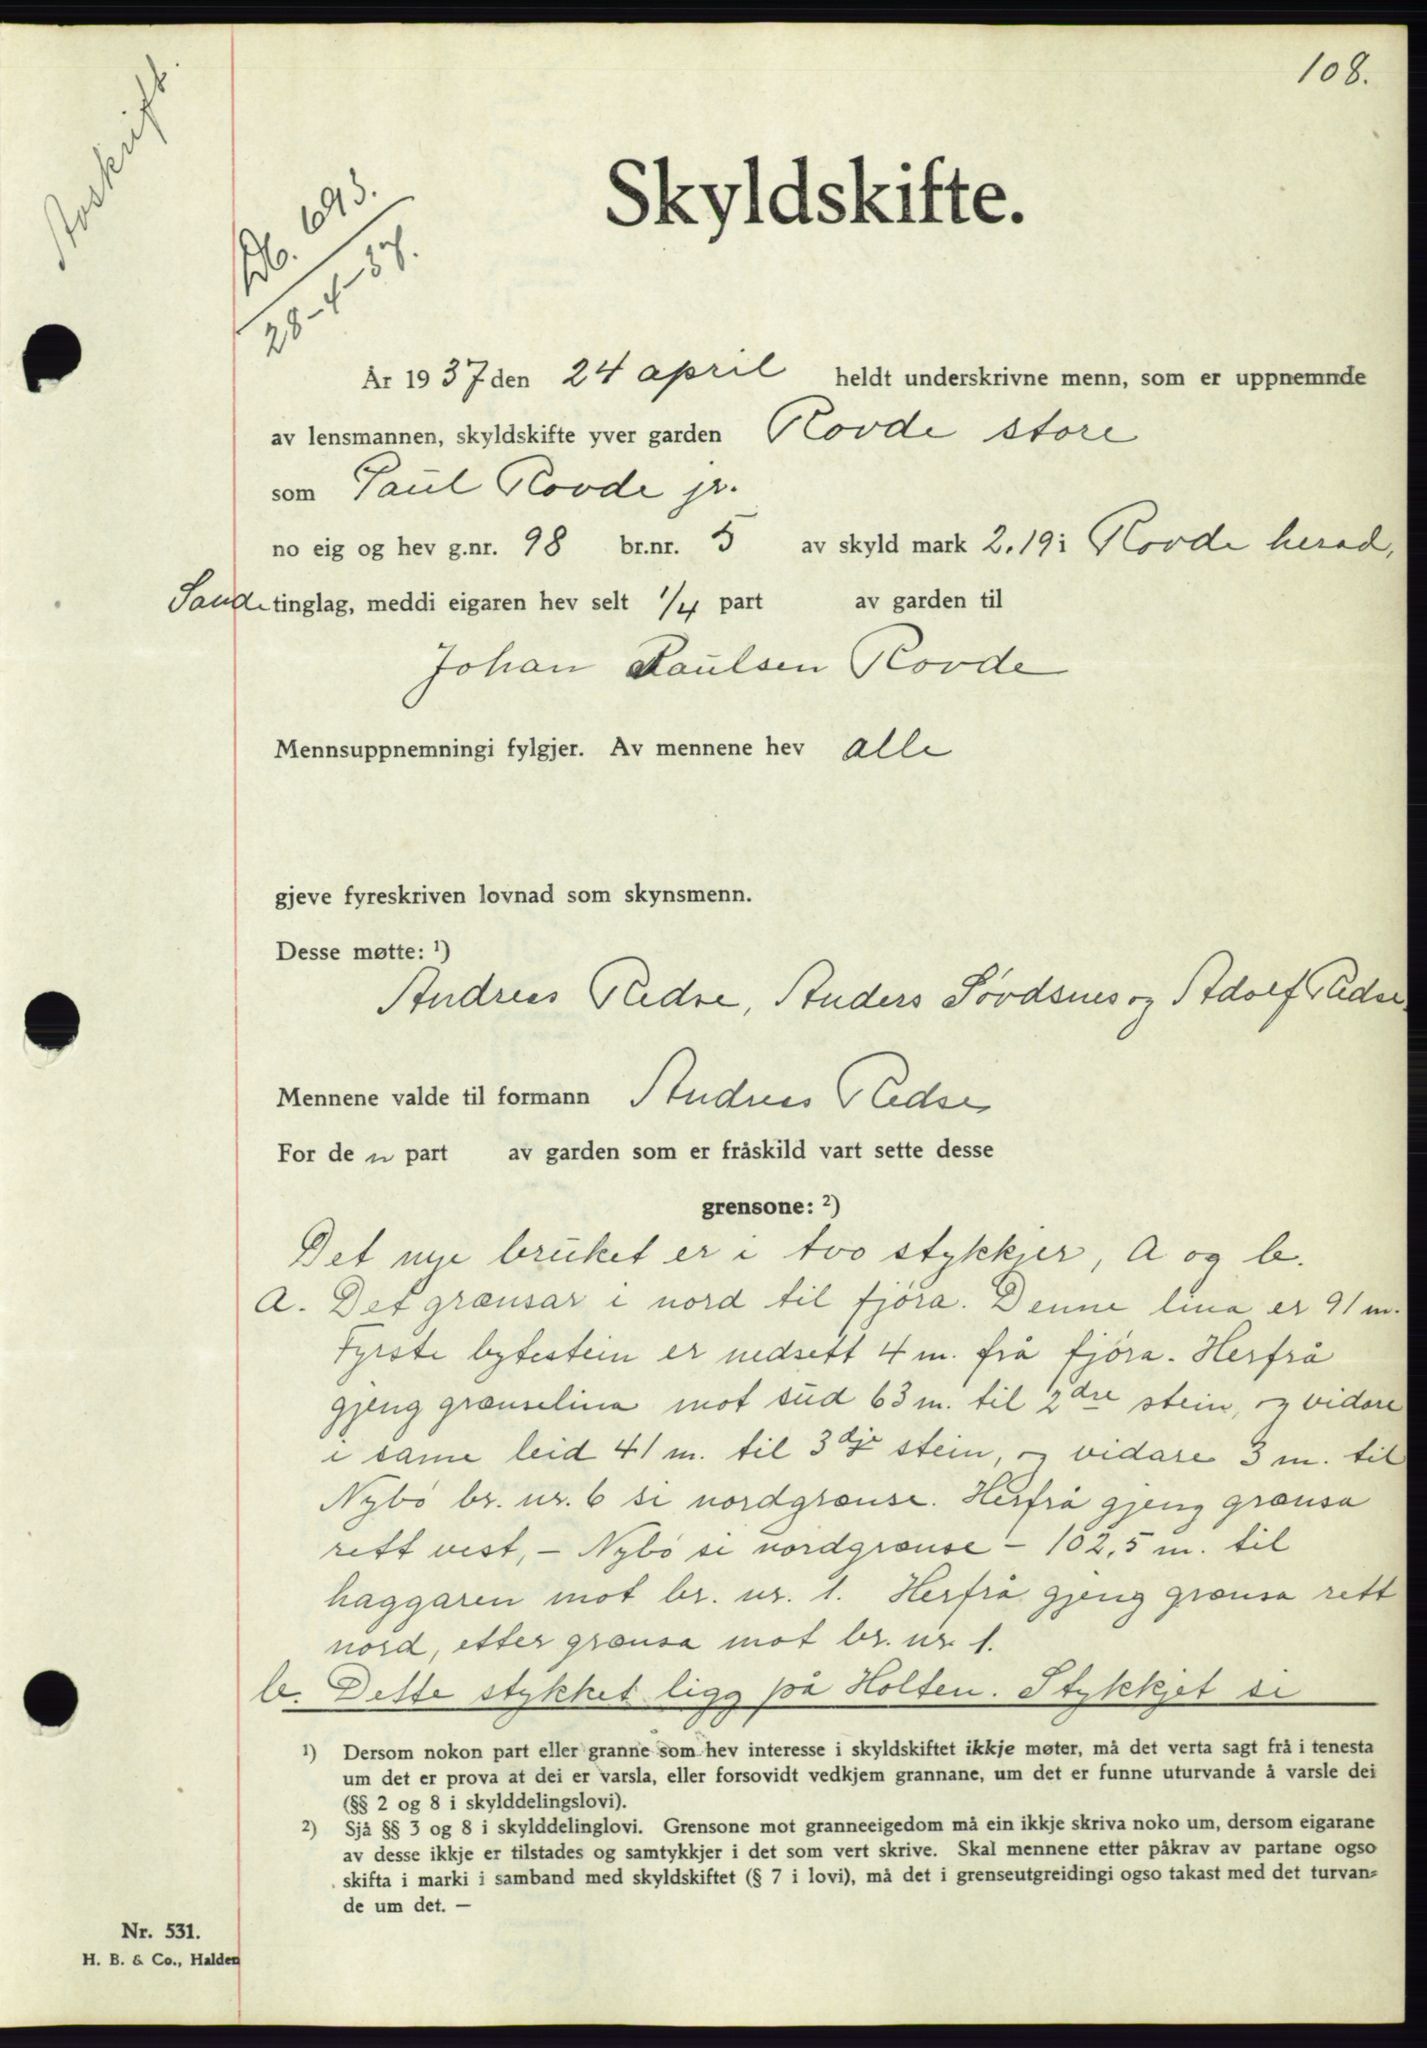 108.
Avskrift.
Db. 693.
28-4-37.
Skyldskifte.
År 1937 den 24 april heldt underskrivne menn, som er uppnemnde
av lensmannen, skyldskifte yver garden Rovde store
som Paul Rovde jr.
no eig og hev g.nr. 98 br.nr. 5 av skyld mark 2.19 i Rovde herad,
Sande tinglag, meddi eigaren hev selt 1/4 part av garden til
Johan Paulsen Rovde
Mennsuppnemningi fylgjer. Av mennene hev alle
gjeve fyreskriven lovnad som skynsmenn.
Desse møtte: ¹)
Andreas Redse, Anders Sövdsnes og Adolf Redse.
Mennene valde til formann Andreas Redse
For de n part av garden som er fråskild vart sette desse
grensone: ²)
Det nye bruket er i tvo stykkjer, A og b.
A. Det grænsar i nord til fjöra. Denne lina er 91 m.
Fyrste bytestein er nedsett 4 m. frå fjöra. Herfrå
gjeng grænselina mot sud 63 m. til 2dre stein, og vidare
i same leid 41 m. til 3dje stein, og vidare 3 m. til
Nybö br. nr. 6 si nordgrænse. Herfrå gjeng grænsa
rett vest, - Nybö si nordgrænse - 102,5 m. til
haggaren mot br. nr. 1. Herfrå gjeng grænsa rett
nord, etter grænsa mot br. nr. 1.
b. Dette stykket ligg på Holten. Stykkjet si
¹) Dersom nokon part eller granne som hev interesse i skyldskiftet ikkje møter, må det verta sagt frå i tenesta
um det er prova at dei er varsla, eller forsovidt vedkjem grannane, um det er funne uturvande å varsle dei
(§§ 2 og 8 i skylddelingslovi).
²) Sjå §§ 3 og 8 i skylddelinglovi. Grensone mot granneeigedom må ein ikkje skriva noko um, dersom eigarane
av desse ikkje er tilstades og samtykkjer i det som vert skrive. Skal mennene etter påkrav av partane ogso
skifta i marki i samband med skyldskiftet (§ 7 i lovi), må det i grenseutgreidingi ogso takast med det turvan-
de um det. —
Nr. 531.
H. B. & Co., Halden